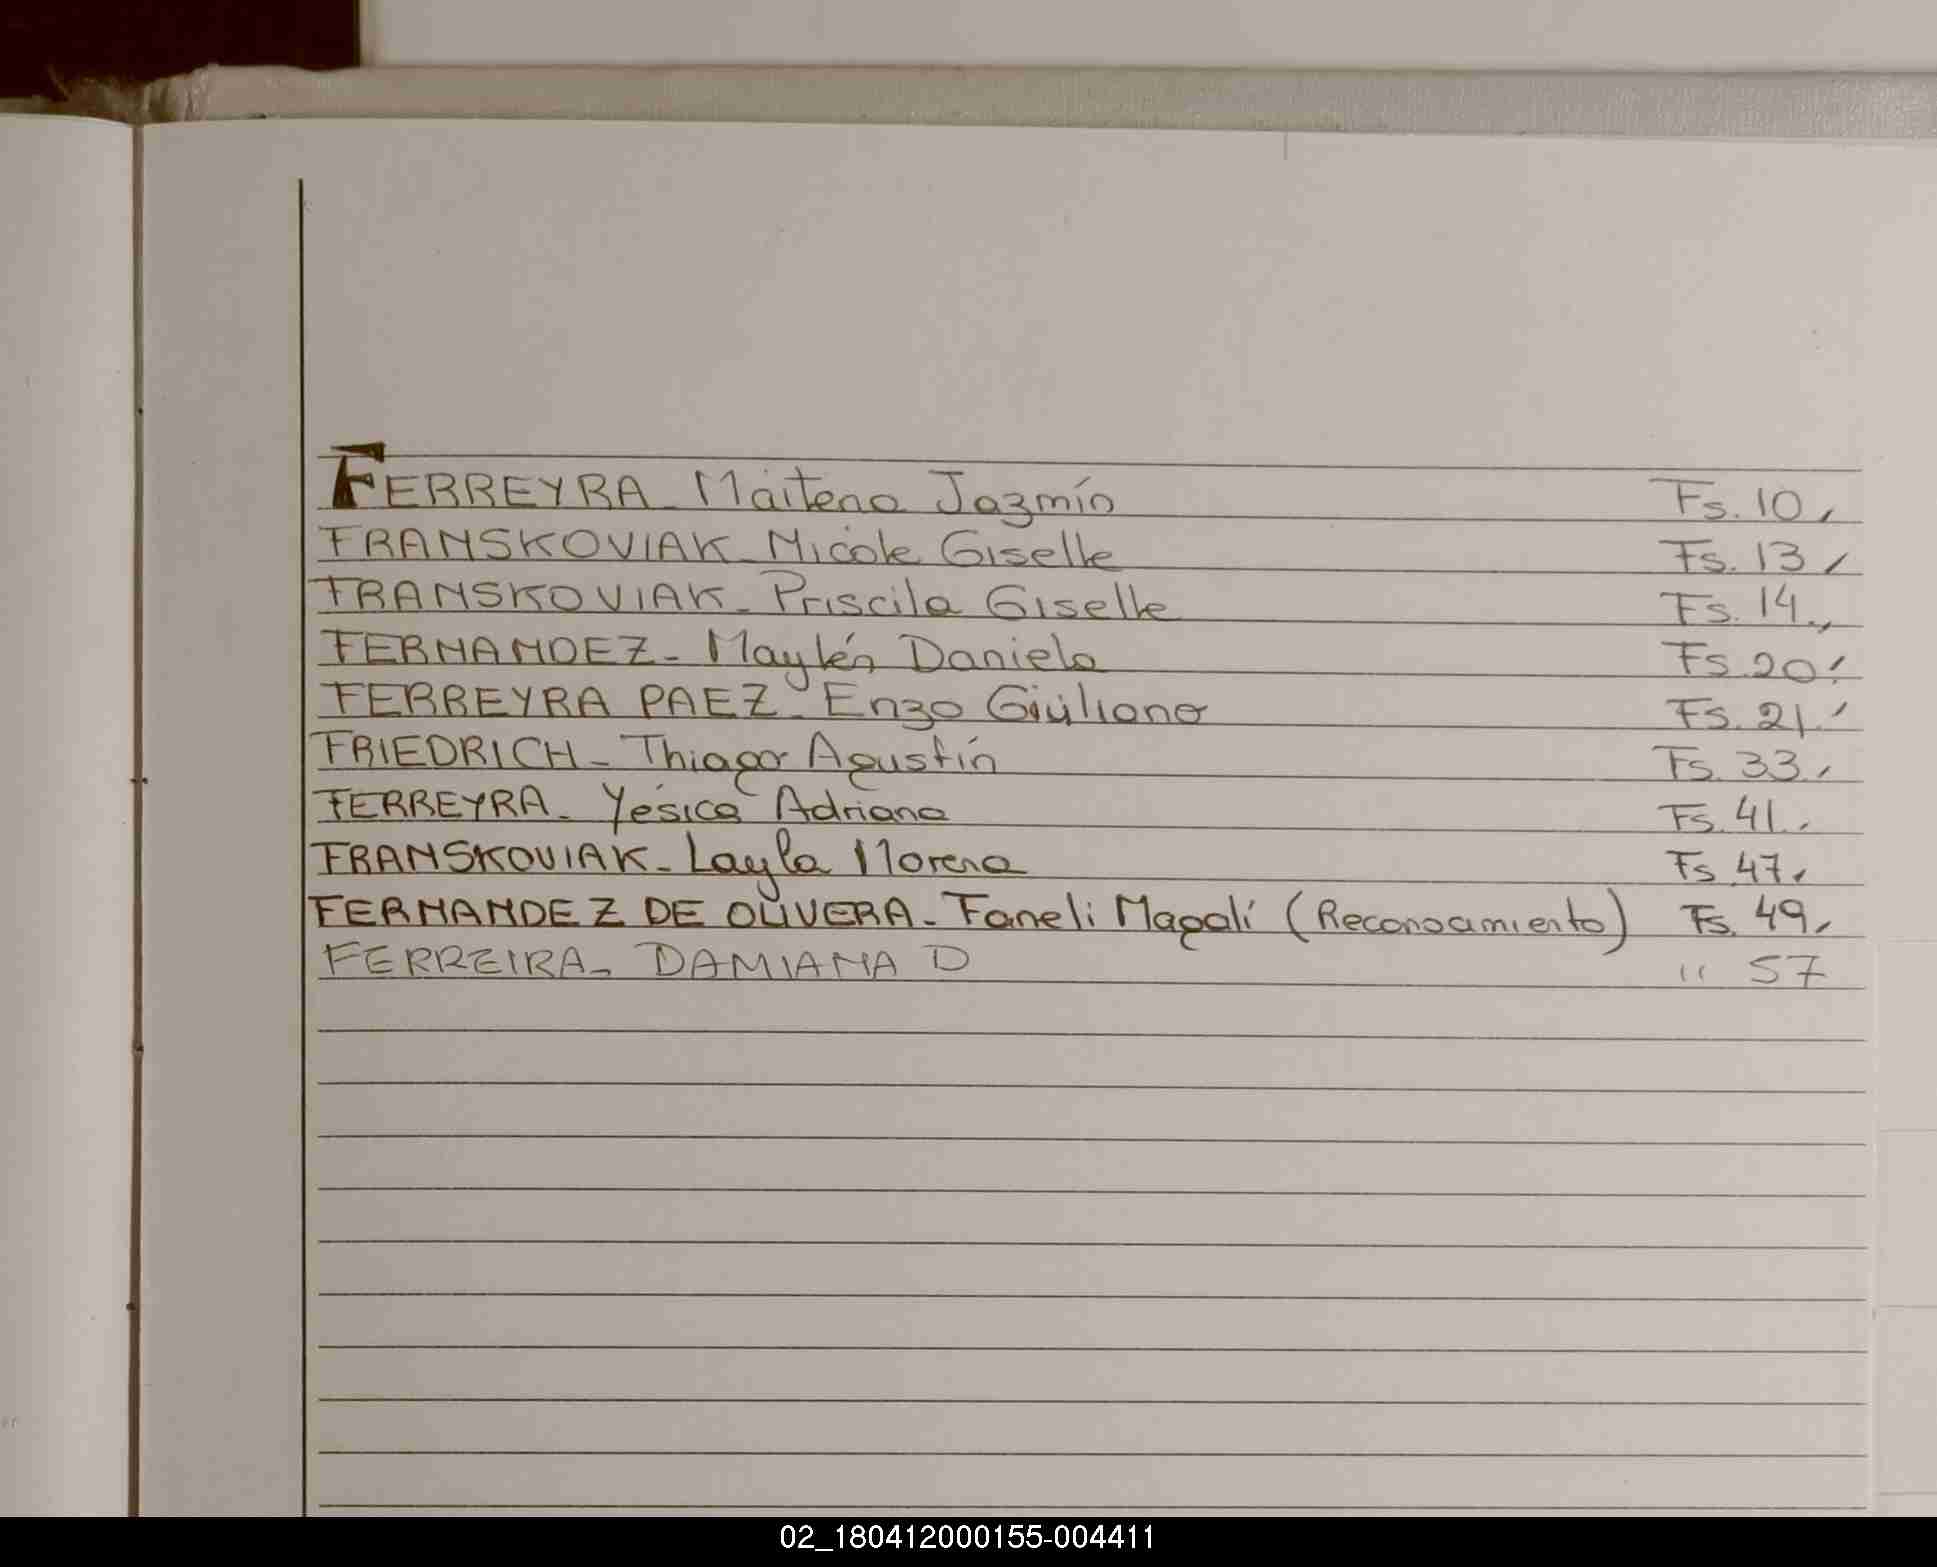 FERREYRA - Maitena Jazmín Fs. 10,
FRANSKOVIAK - Nicole Giselle Fs. 13,
FRANSKOVIAK - Priscila Giselle Fs. 14.,
FERNANDEZ - Maylén Daniela Fs. 20.
FERREYRA PAEZ - Enzo Giuliano Fs. 21.
FRIEDRICH - Thiago Agustín Fs. 33.
FERREYRA - Yésica Adriana Fs. 41.
FRANSKOVIAK - Layla Morena Fs. 47,
FERNANDEZ DE OLIVERA - Faneli Magalí (Reconocimiento) Fs. 49,
FERREIRA - DAMIANA D " 57
02_180412000155-004411